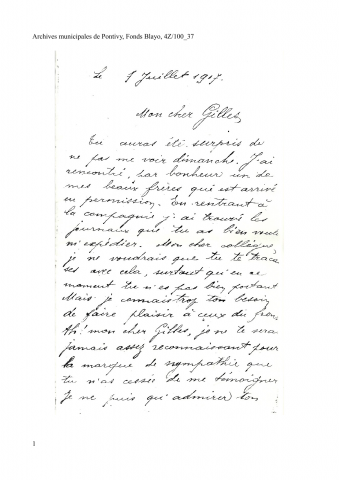 Archives municipales de Pontivy, Fonds Blayo, 4Z/100_37
Le 9 Juillet 1917.
Mon cher Gilles,
Tu auras été surpris de
ne pas me voir dimanche. J'ai
rencontré, par bonheur un de
mes beaux frères qui est arrivé
en permission. En rentrant à
la compagnie j'ai trouvé les
journaux que tu as bien voulu
m'expédier. Mon cher collègue,
je ne voudrais que tu te tracas
ses avec cela, surtout qu'en ce
moment tu n'es pas bien portant
Mais je connais trop ton besoin
de faire plaisir à ceux du front
Ah! mon cher Gilles, je ne te serai
jamais assez reconnaissant pour
la marque de sympathie que
tu n'as cessée de me témoigner
Je ne puis qu'admirer ton
1